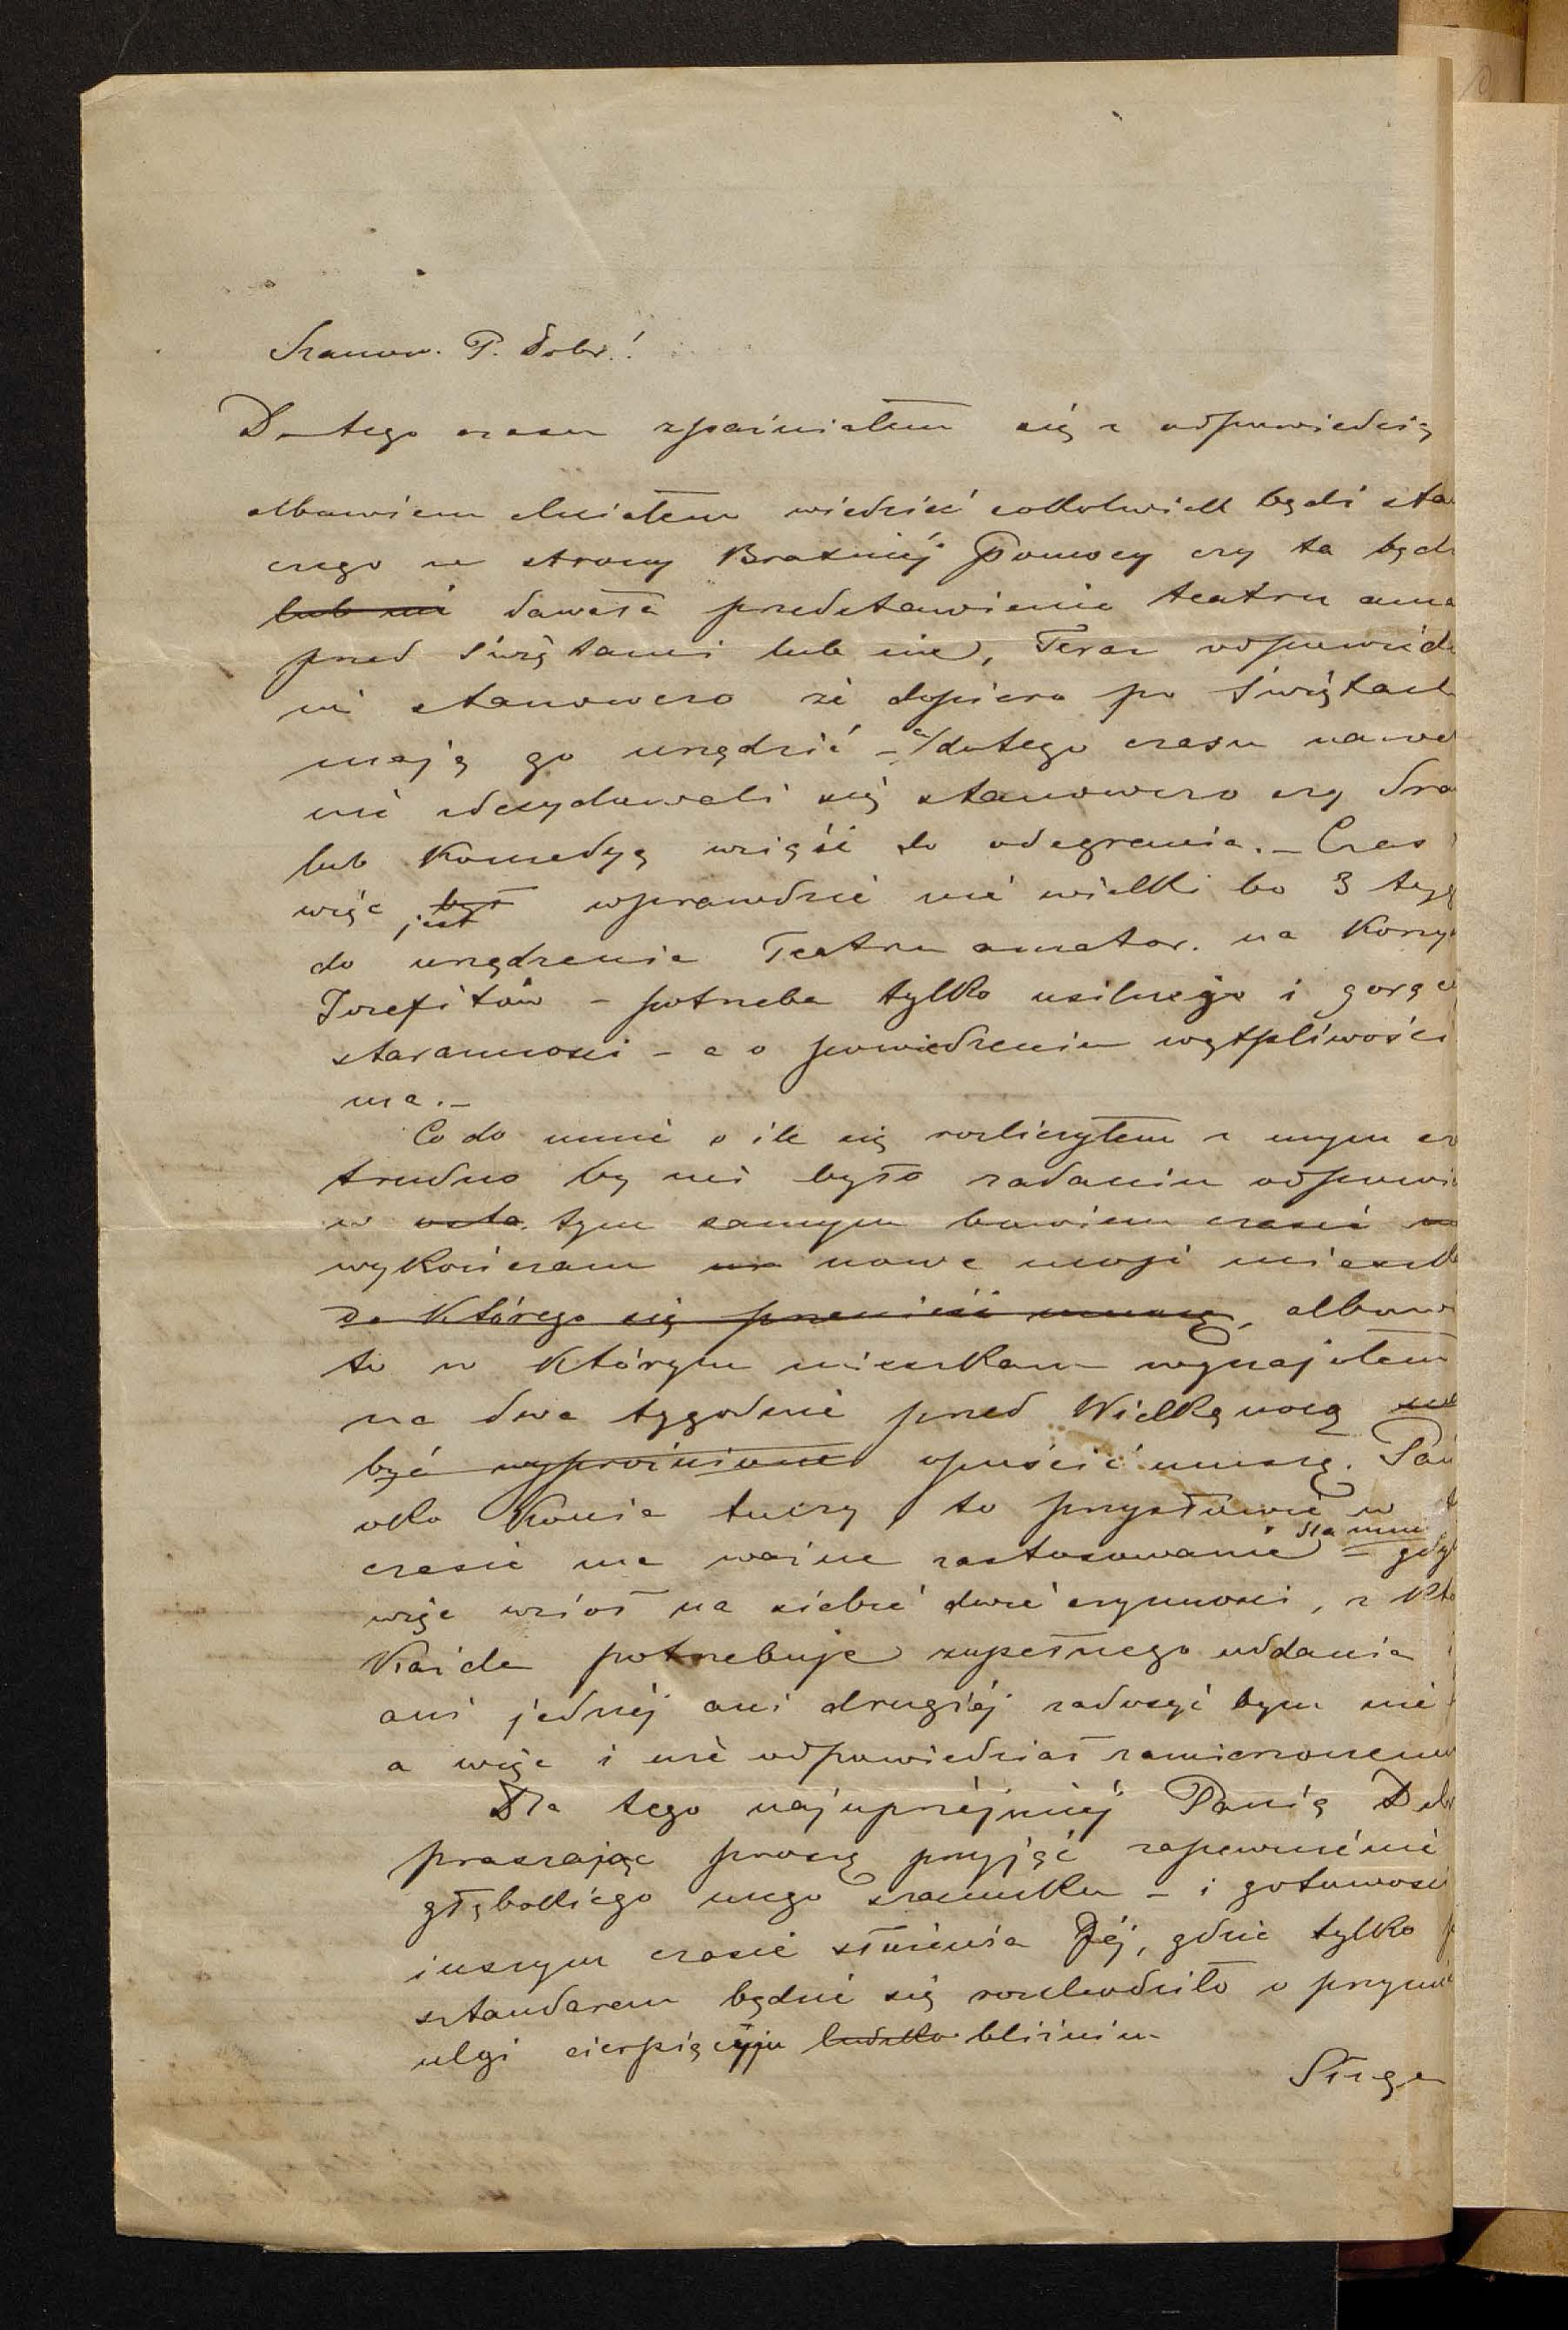 Szanow. P. Dobr.!
Do tego czasu zpaźniałem się z odpowiedzią
albowiem chciałem wiedzieć cokolwiek bądź sta
czego ze strony Bratniéj Pomocy czy ta będz
lub nie dawała przedstawienie teatru ama
przed Świętami lub nie, Teraz odpowiedz
mi stanowczo że dopiero po Świętach
mają go urządzić – a dotego czasu nawe
nie zdecydowali się stanowczo czy dra
lub Komedyą wziąść do odegrania. – Czas
więc był jest wprawdzie nie wielki bo 3 tyg
do urządzenia Teatru amator. na Korzy
Józefitów – potrzeba tylko usilnego i gorąc
staranności – a o powiedzeniu wątpliwości
ma. –
Co do mnie o ile się rozliczyłem z mym cz
trudno by mi było zadaniu odpowi
w tym samym bowiem czasie
wykończam nowe moje mieszk
do którego się przenieść muszę, albow
to w którym mieszkam wynająłem
na dwa tygodnie przed Wielkąnocą
być wypróżnione opuścić muszę. Pań
oko Konia tuczy to przysłowie w t
czasie ma ważne zastosowanie dla mni – gdyb
więc wziął na siebie dwie czynności, z Któ
Każda potrzebuje zupełnego oddania
ani jednéj ani drugiéj zadosyć bym nie
a więc i nie odpowiedział zamierzonemu
Dla tego najuprzéjmiéj Panią Dob
praszając proszę przyjąć zapewnienie
głębokiego mego szacunku – i gotowość
inszym czasie służenia Jéj, gdzie tylko p
sztandarem będzie się rozchodziło o przynie
ulgi cierpiącym ludzko bliźnim
Sługa